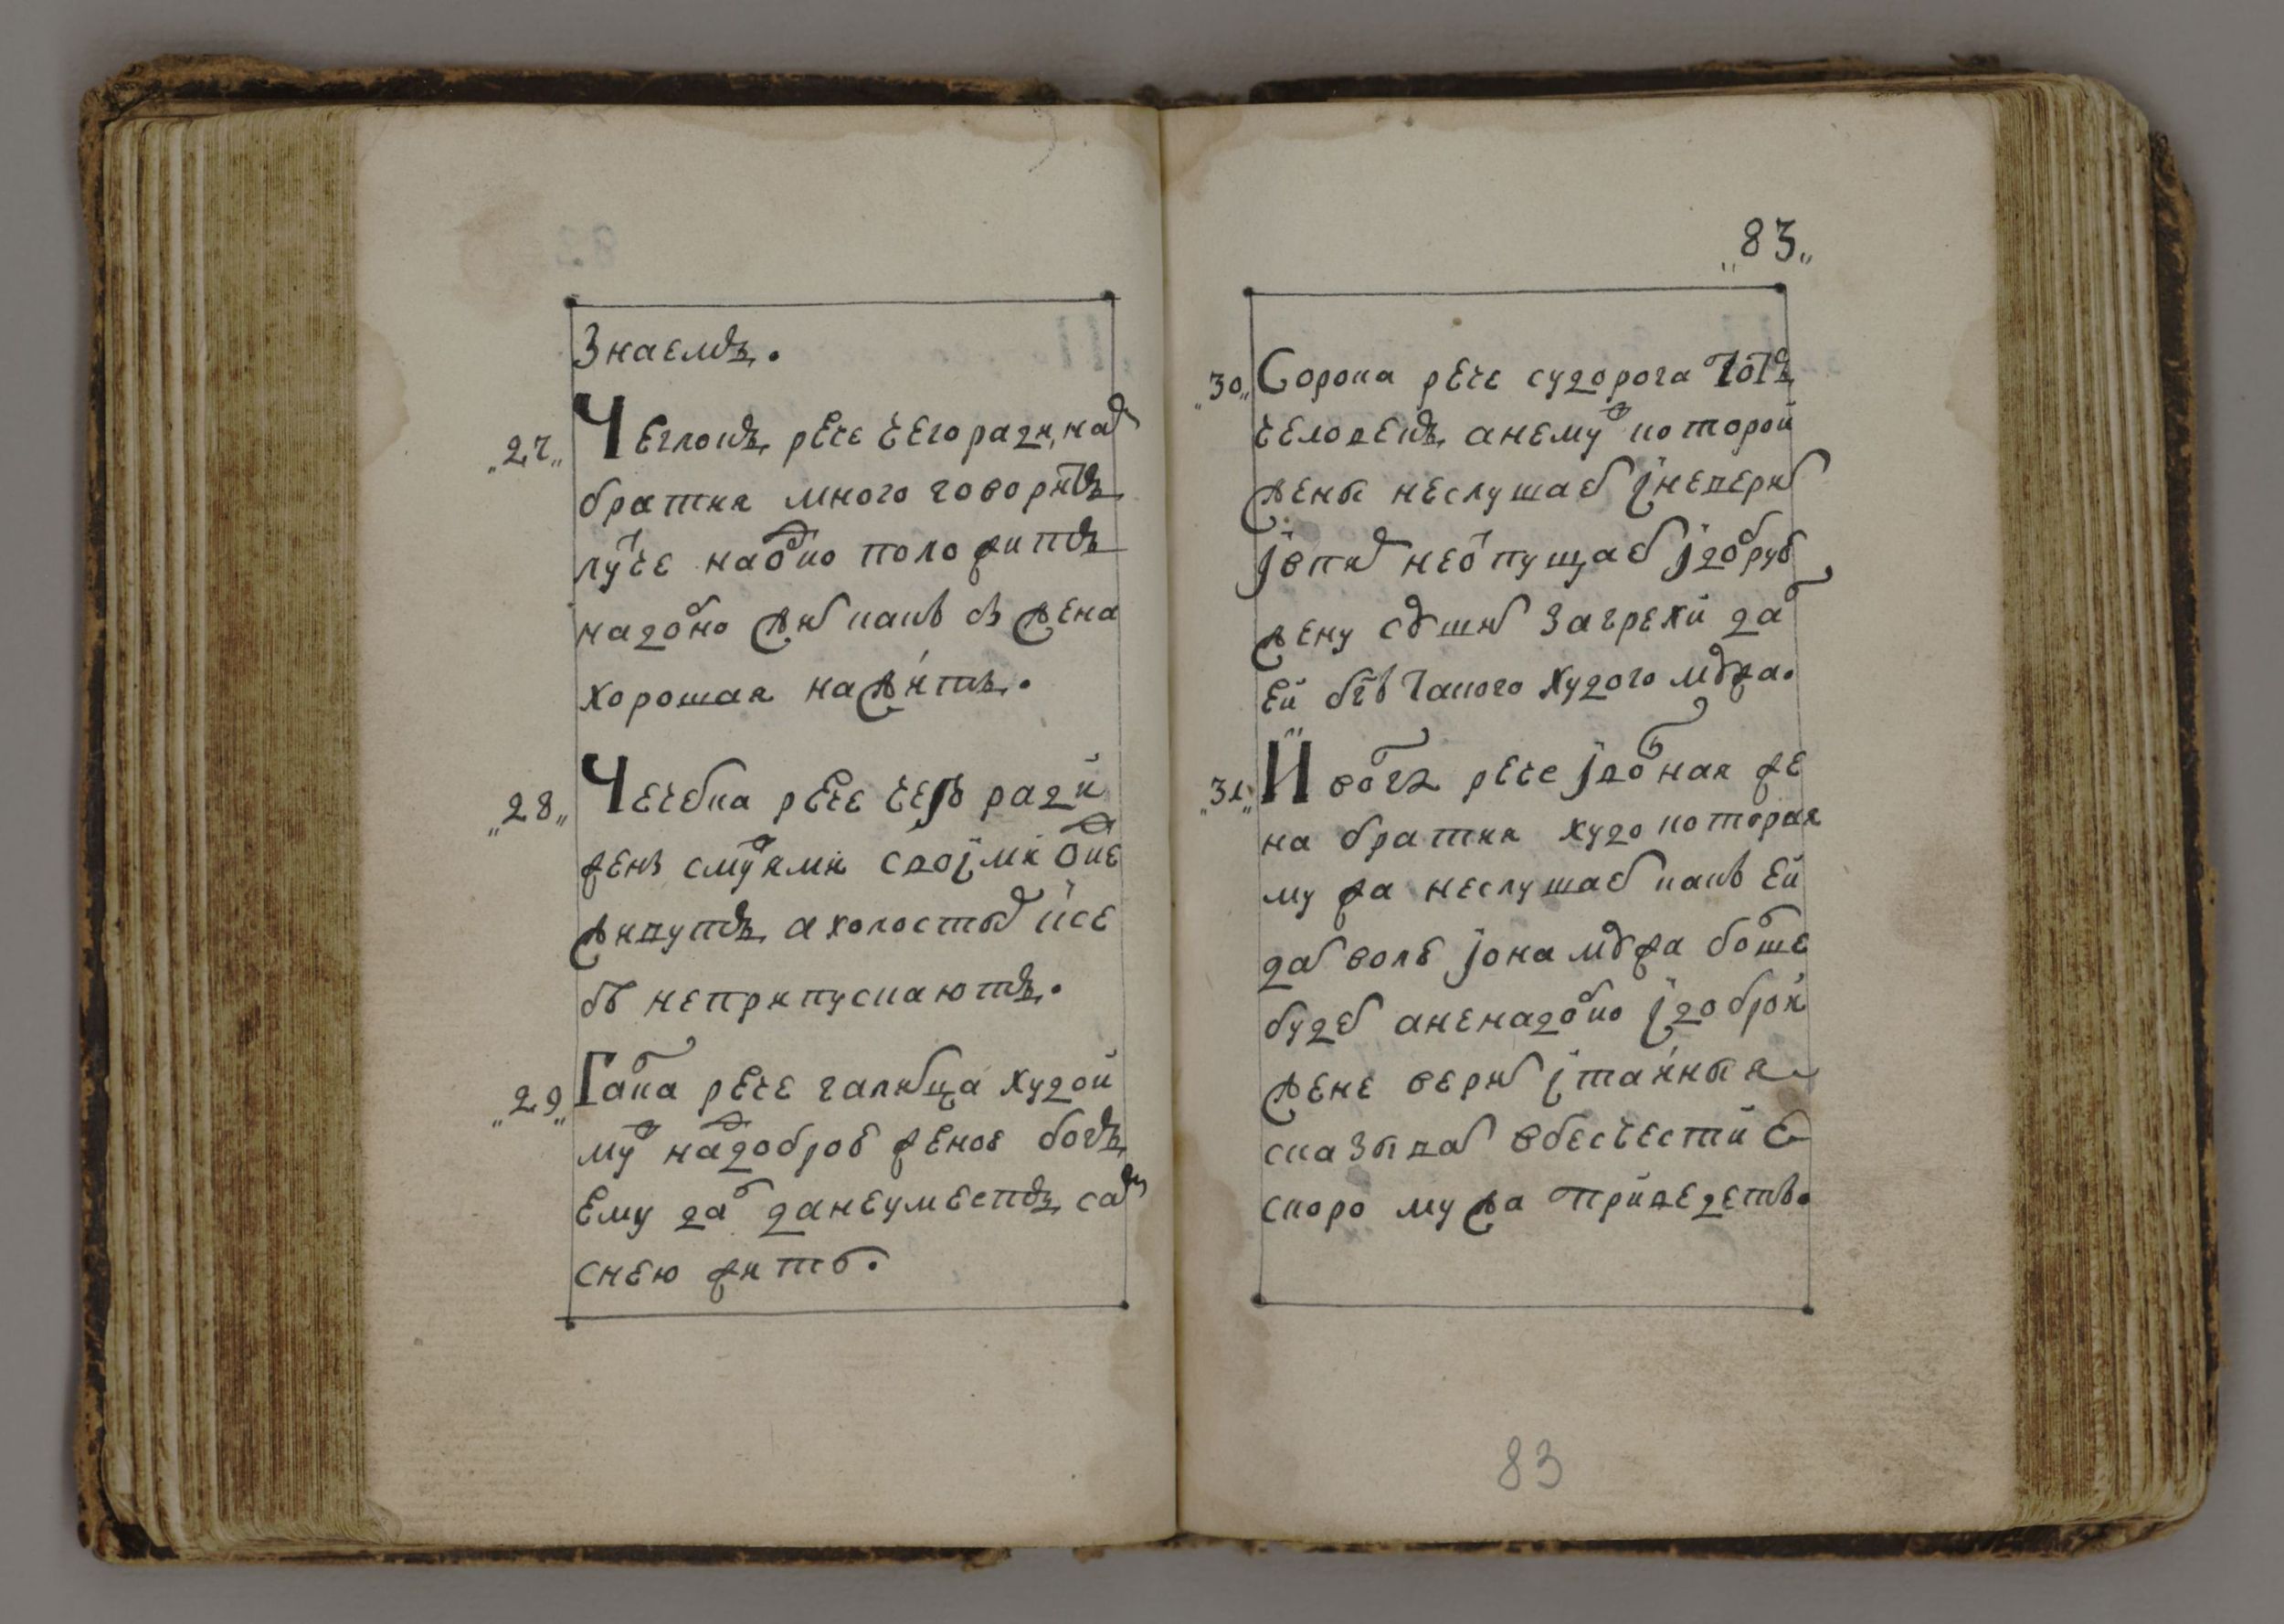 Знаемъ.
„27„ Чеглокъ рече чего ради намъ
братия много говорить
лутче надобно положитъ
надобно жить какъ бъ жена
хорошая нажить.
„28„ Чечетка рече чего ради
жены с мужями своими оне
живутъ а холостых к себ
бѣ неприпускаютъ.
„29„ Галка рече галица худой
мужъ на доброе жене богъ
Ему далъ да неумеетъ самъ
снею жить.
„83„
„30„ Сорока рече судорога тотъ
человекъ а немужъ которой
жены не слушаетъ и не верить
и в пиръ не отпущаетъ и добрую
жену с душить за грехи далъ
Ей богъ такого худого мужа.
„31„ Иволга рече иволная же
на братия худо которая
мужа неслушаетъ какъ ей
дать волю и она мужа больше
будетъ а не надобно и доброй
жене верить и тайныя
сказывать в бесчестие
скоро мужа приведетъ.
83